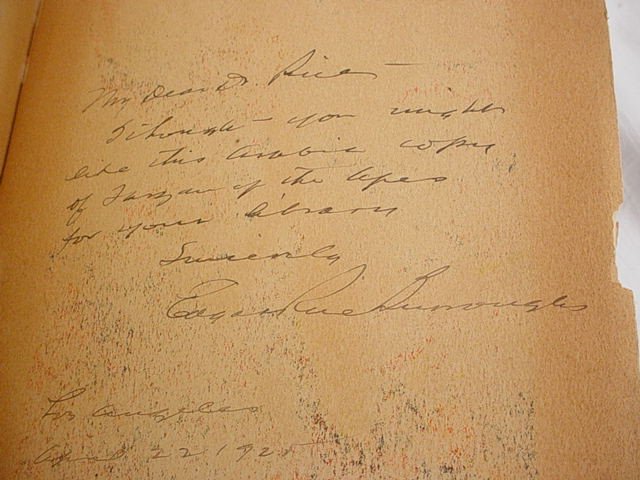 My Dear Dr. Rice –
I thought you might
like this Arabic copy
of Tarzan of the Apes
for your library
Sincerely
Edgar Rice Burroughs
Los Angeles
April 22 1925